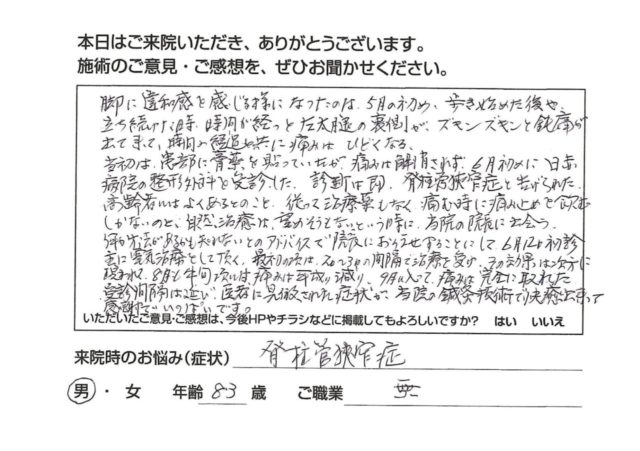 本日はご来院いただき、ありがとうございます。
施術のご意見・ご感想を、ぜひお聞かせください。
脚に違和感を感じる様になったのは、5月の初め、歩き始めた後や、
立ち続けた時、時間が経つと左太腿の裏側が、ズキンズキンと鈍痛が
出て来て、時間の経過と共に痛みは ひどくなる。
当初は、患部に膏薬を貼っていたが 痛みは解消されず、6月初めに日赤
病院の整形外科を受診した、診断は即、脊柱管狭窄症と告げられた。
高齢者にはよくあるとのこと、従って治療薬もなく、痛む時に痛み止めを飲む
しかないのと、自然治療は、望めそうもないという時に、当院の院長に出会う。
とのアドバイスで院長にお任せすることにして 6月12日初診
主に電気治療をして頂く、最初の頃は、2〜3日の間隔で治療を受け、その効果は
現われて、8月も半頃には痛みは半減り、9月に入って、痛みは完全に取れた
医者に見放された症状が、当院の鍼灸技術で
感謝でいっぱいです。
いただいたご意見・ご感想は、今後HPやチラシなどに掲載してもよろしいですか？ はい いいえ
来院時のお悩み（症状） 脊柱管狭窄症
男・女 年齢 83 歳 ご職業 無